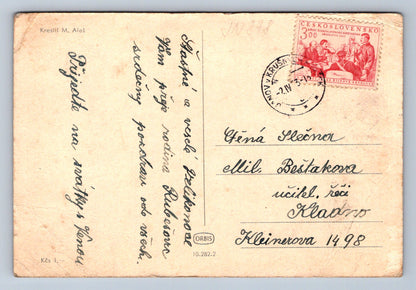 Kreslil M. Aleš
Šťastné a veselé Velikonoce
Vám přeje rodina Rubešova
srdečný pozdrav ode všech.
Přijeďte na svátky s Venou
Kčs 1,—
ORBIS
10.282.2
ČESKOSLOVENSKO
3.00
-2.IV.5
Ctěná Slečna
Mil. Bešťakova
učitel. řeči
Kladno
Kleinerova 1498